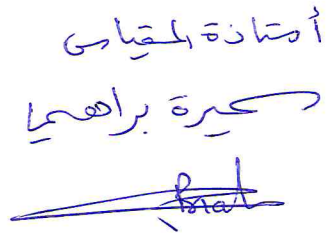 أستاذة المقياس
سميرة براهيمي